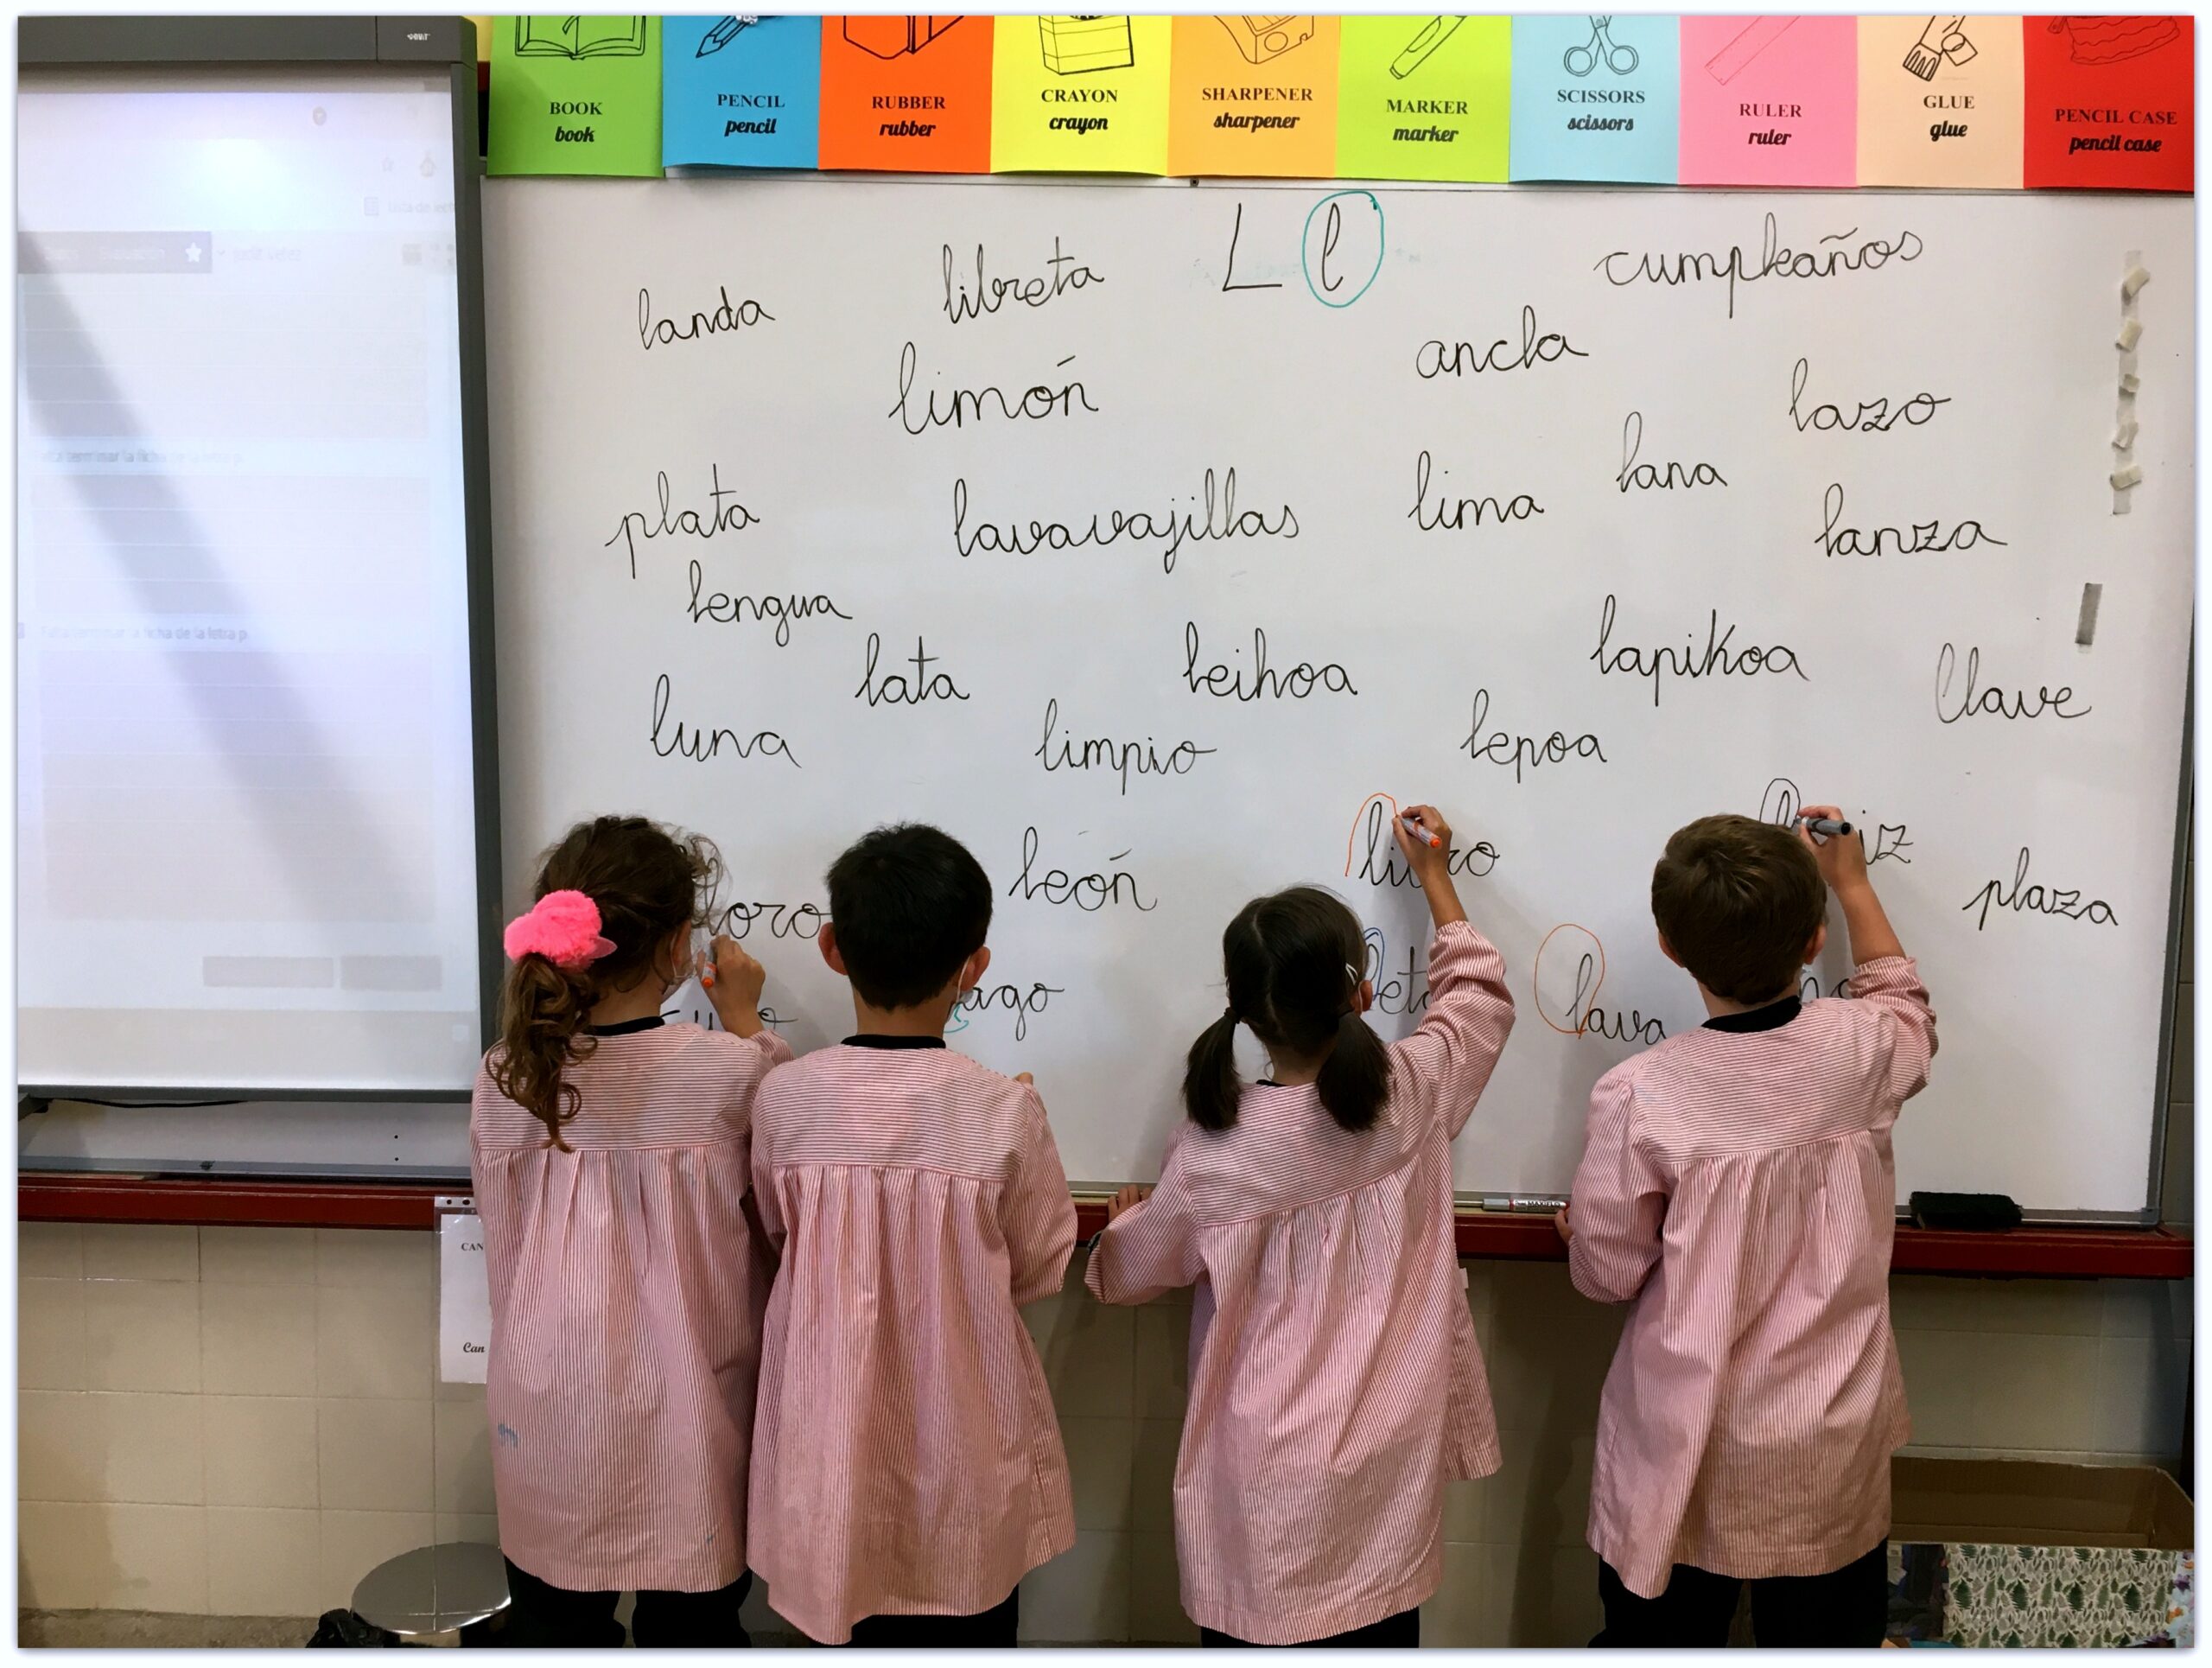 BOOK
book
PENCIL
pencil
RUBBER
rubber
CRAYON
crayon
SHARPENER
sharpener
MARKER
marker
SCISSORS
scissors
RULER
ruler
GLUE
glue
PENCIL CASE
pencil case
L l
landa
libreta
cumpleaños
limón
ancla
lazo
plata
lavavajillas
lima
lana
lanza
lengua
lata
leihoa
lapikoa
llave
luna
limpio
lepoa
león
plaza
loro
ago
lava
CAN
Can